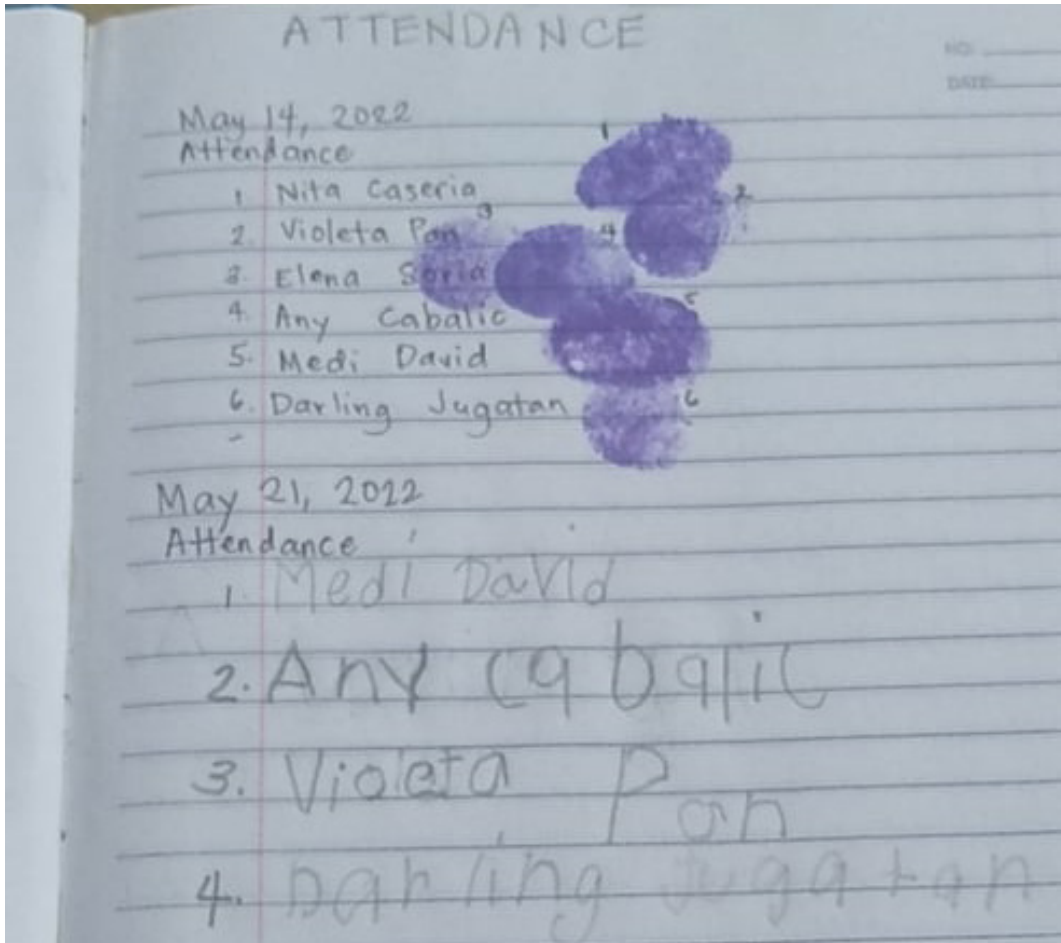 ATTENDANCE
NO:
DATE:
May 14, 2022
Attendance
1 Nita Caseria
2. Violeta Pan
3. Elena Soria
4. Any Cabalic
5. Medi David
6. Darling Jugatan
1
2
3
4
5
6
May 21, 2022
Attendance
1. Medi David
2. Any Cabalic
3. Violeta Pan
4. Darling Jugatan